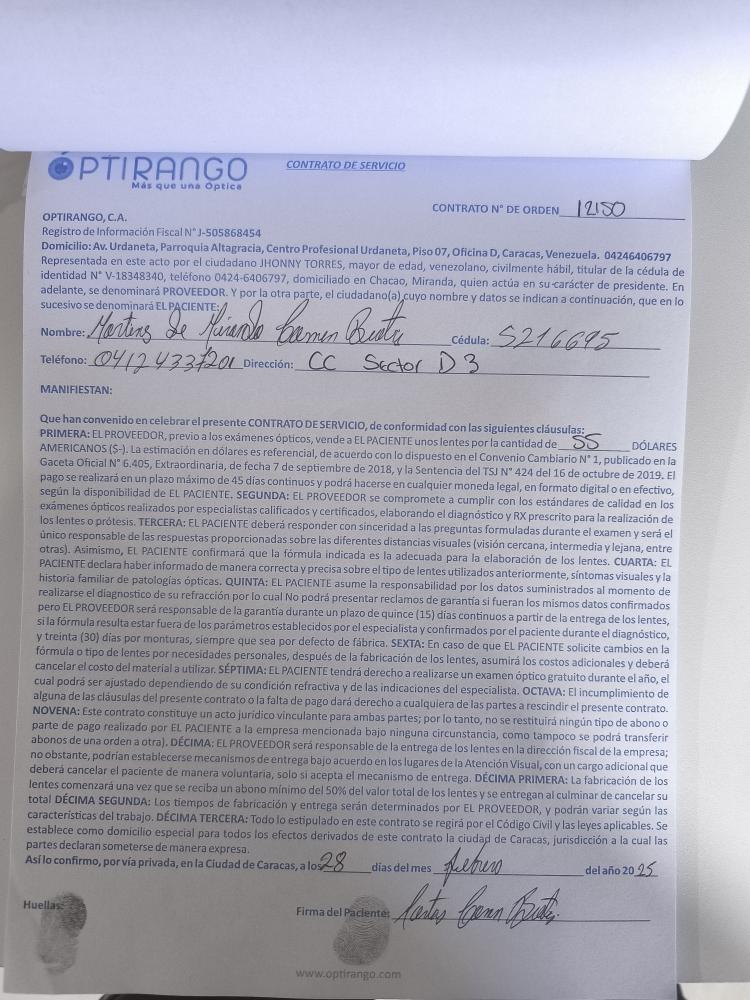 OPTIRANGO
Más que una Óptica
CONTRATO DE SERVICIO
CONTRATO N° DE ORDEN 12150
OPTIRANGO, C.A.
Registro de Información Fiscal N° J-505868454
Domicilio: Av. Urdaneta, Parroquia Altagracia, Centro Profesional Urdaneta, Piso 07, Oficina D, Caracas, Venezuela. 04246406797
Representada en este acto por el ciudadano JHONNY TORRES, mayor de edad, venezolano, civilmente hábil, titular de la cédula de
identidad N° V-18348340, teléfono 0424-6406797, domiciliado en Chacao, Miranda, quien actúa en su carácter de presidente. En
adelante, se denominará PROVEEDOR. Y por la otra parte, el ciudadano(a) cuyo nombre y datos se indican a continuación, que en lo
sucesivo se denominará EL PACIENTE:
Nombre: Martins de Miranda Carmen Beatriz Cédula: 5216695
Teléfono: 04124337201 Dirección: CC Sector D 3
MANIFIESTAN:
Que han convenido en celebrar el presente CONTRATO DE SERVICIO, de conformidad con las siguientes cláusulas:
PRIMERA: EL PROVEEDOR, previo a los exámenes ópticos, vende a EL PACIENTE unos lentes por la cantidad de 55 DÓLARES
AMERICANOS ($-). La estimación en dólares es referencial, de acuerdo con lo dispuesto en el Convenio Cambiario N° 1, publicado en la
Gaceta Oficial N° 6.405, Extraordinaria, de fecha 7 de septiembre de 2018, y la Sentencia del TSJ N° 424 del 16 de octubre de 2019. El
pago se realizará en un plazo máximo de 45 días continuos y podrá hacerse en cualquier moneda legal, en formato digital o en efectivo,
según la disponibilidad de EL PACIENTE. SEGUNDA: EL PROVEEDOR se compromete a cumplir con los estándares de calidad en los
exámenes ópticos realizados por especialistas calificados y certificados, elaborando el diagnóstico y RX prescrito para la realización de
los lentes o prótesis. TERCERA: EL PACIENTE deberá responder con sinceridad a las preguntas formuladas durante el examen y será el
único responsable de las respuestas proporcionadas sobre las diferentes distancias visuales (visión cercana, intermedia y lejana, entre
otras). Asimismo, EL PACIENTE confirmará que la fórmula indicada es la adecuada para la elaboración de los lentes. CUARTA: EL
PACIENTE declara haber informado de manera correcta y precisa sobre el tipo de lentes utilizados anteriormente, síntomas visuales y la
historia familiar de patologías ópticas. QUINTA: EL PACIENTE asume la responsabilidad por los datos suministrados al momento de
realizarse el diagnostico de su refracción por lo cual No podrá presentar reclamos de garantía si fueran los mismos datos confirmados
pero EL PROVEEDOR será responsable de la garantía durante un plazo de quince (15) días continuos a partir de la entrega de los lentes,
si la fórmula resulta estar fuera de los parámetros establecidos por el especialista y confirmados por el paciente durante el diagnóstico,
y treinta (30) días por monturas, siempre que sea por defecto de fábrica. SEXTA: En caso de que EL PACIENTE solicite cambios en la
fórmula o tipo de lentes por necesidades personales, después de la fabricación de los lentes, asumirá los costos adicionales y deberá
cancelar el costo del material a utilizar. SÉPTIMA: EL PACIENTE tendrá derecho a realizarse un examen óptico gratuito durante el año, el
cual podrá ser ajustado dependiendo de su condición refractiva y de las indicaciones del especialista. OCTAVA: El incumplimiento de
alguna de las cláusulas del presente contrato o la falta de pago dará derecho a cualquiera de las partes a rescindir el presente contrato.
NOVENA: Este contrato constituye un acto jurídico vinculante para ambas partes; por lo tanto, no se restituirá ningún tipo de abono o
parte de pago realizado por EL PACIENTE a la empresa mencionada bajo ninguna circunstancia, como tampoco se podrá transferir
abonos de una orden a otra). DÉCIMA: EL PROVEEDOR será responsable de la entrega de los lentes en la dirección fiscal de la empresa;
no obstante, podrían establecerse mecanismos de entrega bajo acuerdo en los lugares de la Atención Visual, con un cargo adicional que
deberá cancelar el paciente de manera voluntaria, solo si acepta el mecanismo de entrega. DÉCIMA PRIMERA: La fabricación de los
lentes comenzará una vez que se reciba un abono mínimo del 50% del valor total de los lentes y se entregan al culminar de cancelar su
total DÉCIMA SEGUNDA: Los tiempos de fabricación y entrega serán determinados por EL PROVEEDOR, y podrán variar según las
características del trabajo. DÉCIMA TERCERA: Todo lo estipulado en este contrato se regirá por el Código Civil y las leyes aplicables. Se
establece como domicilio especial para todos los efectos derivados de este contrato la ciudad de Caracas, jurisdicción a la cual las
partes declaran someterse de manera expresa.
Así lo confirmo, por vía privada, en la Ciudad de Caracas, a los 28 días del mes febrero del año 2025
Huellas:
Firma del Paciente: Carmen
www.optirango.com